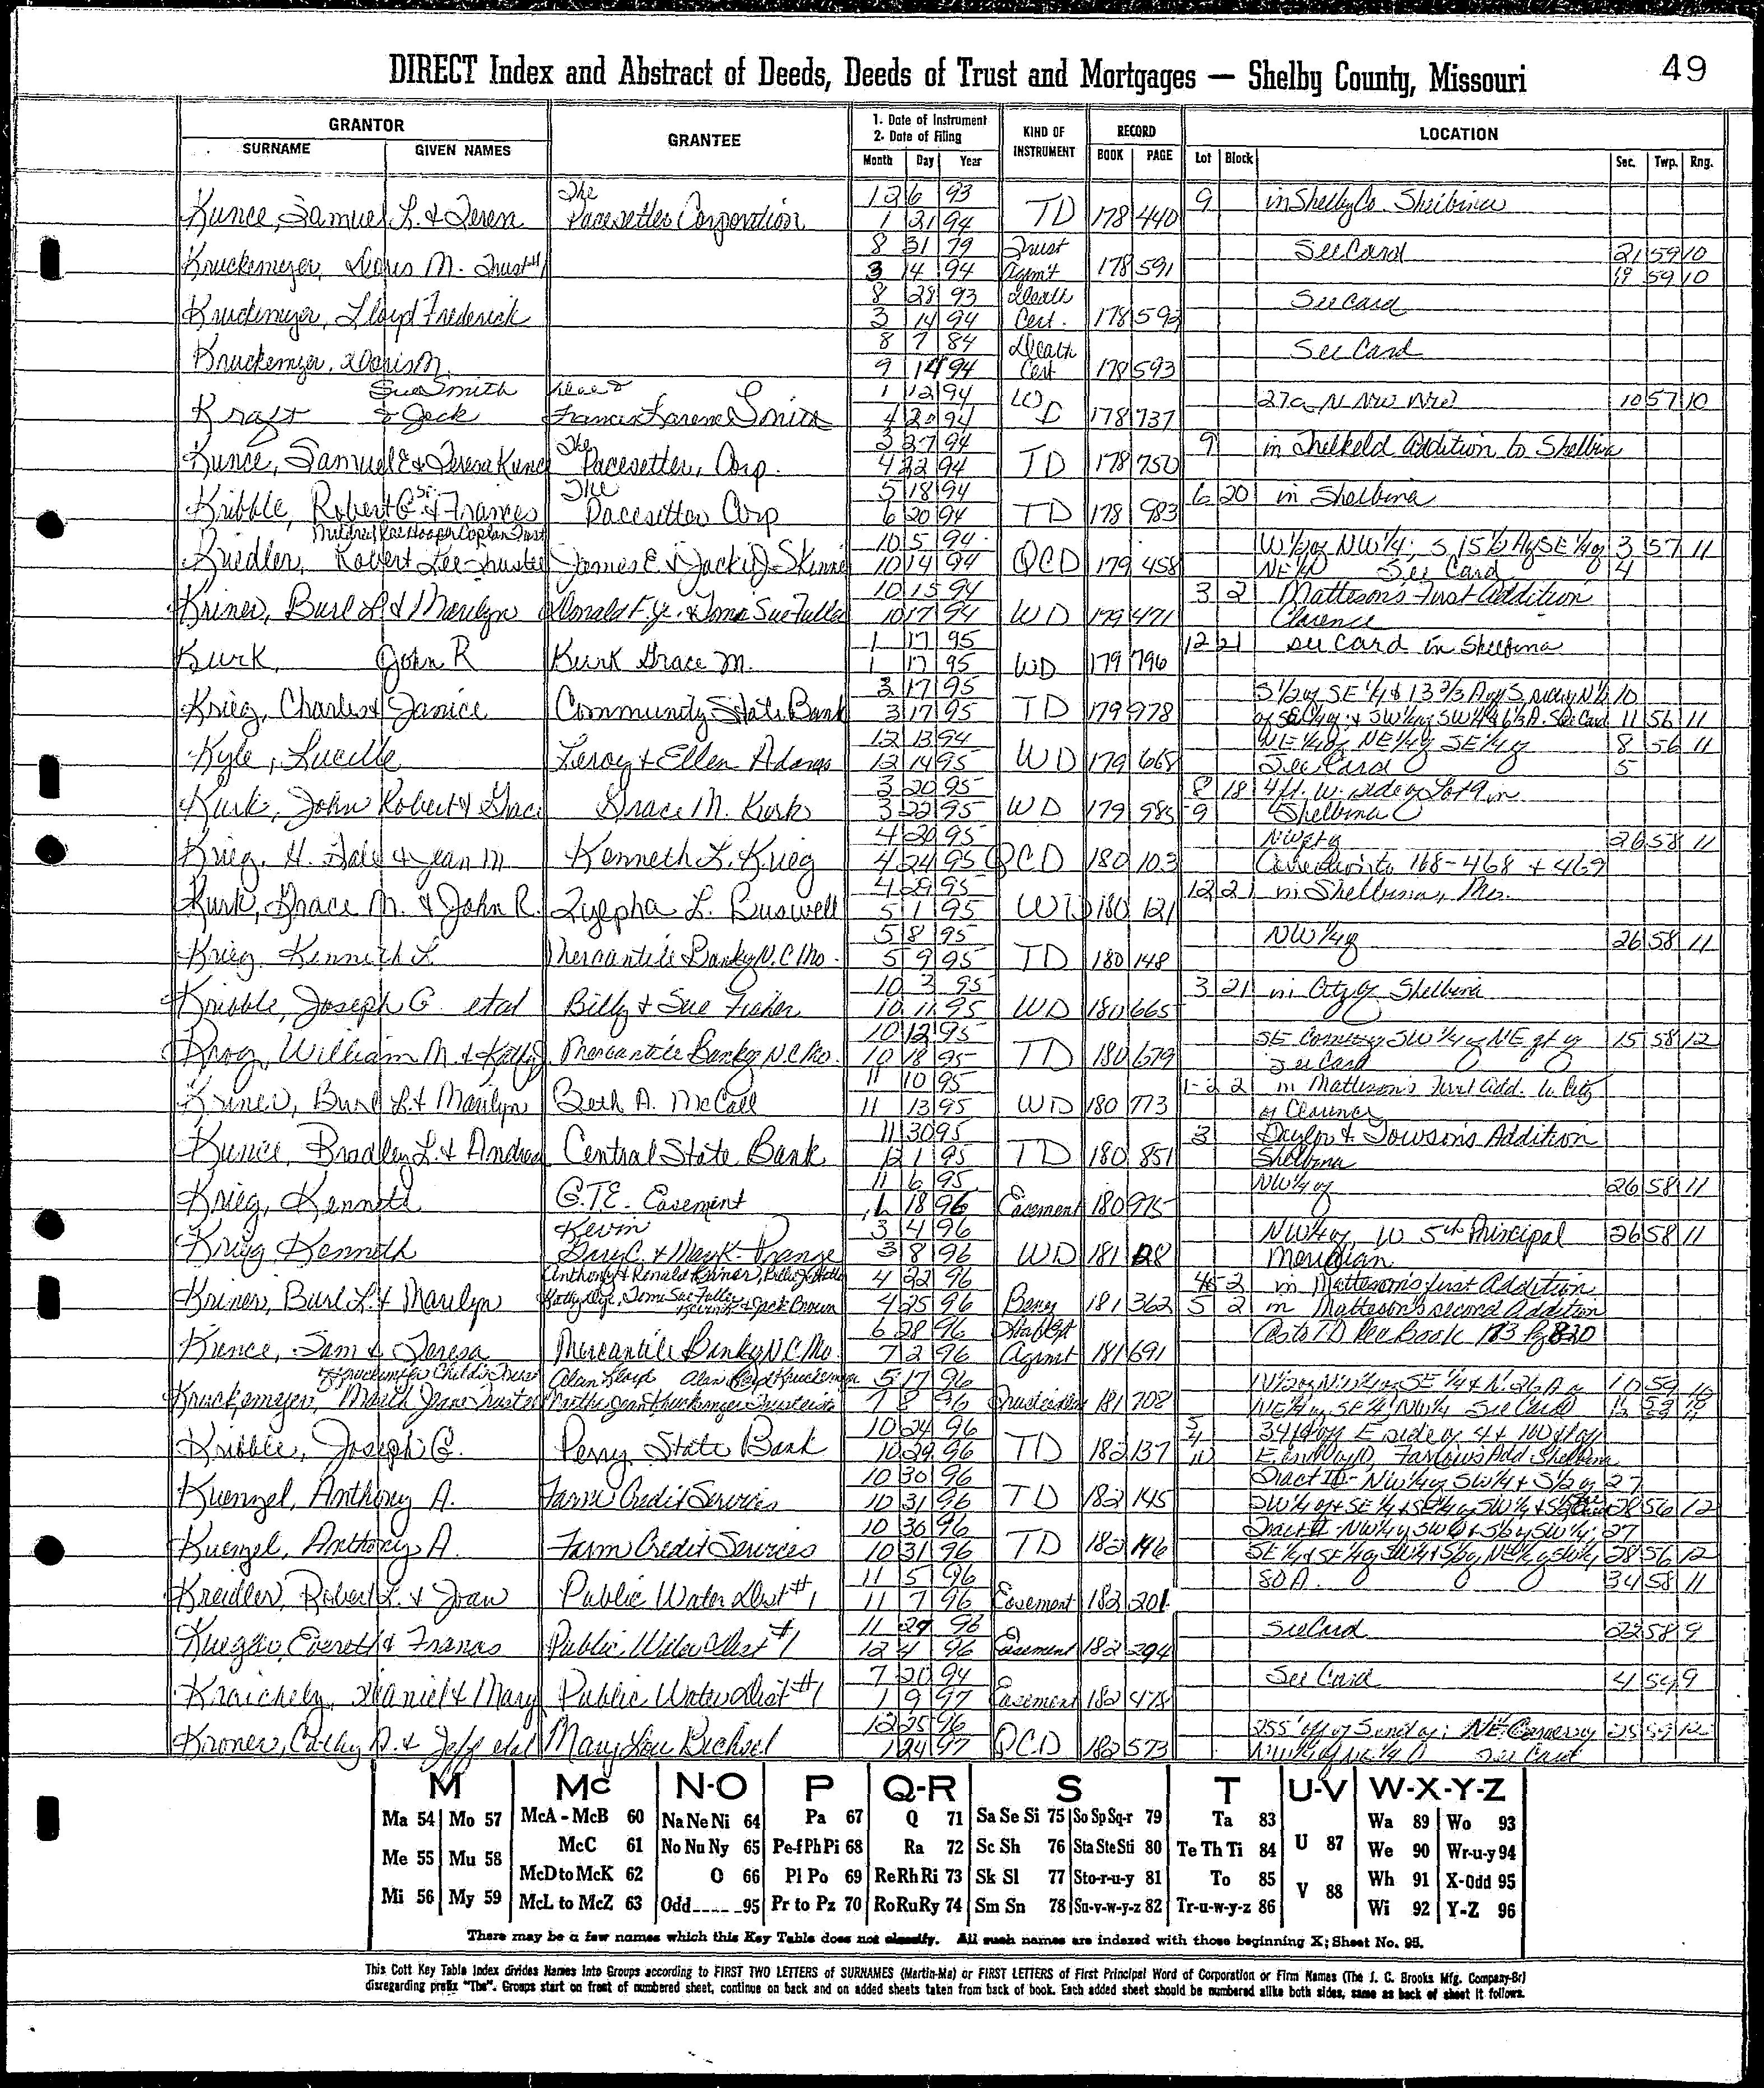 49
DIRECT Index and Abstract of Deeds, Deeds of Trust and Mortgages — Shelby County, Missouri
GRANTOR GRANTEE 1. Date of Instrument 2. Date of Filing KIND OF INSTRUMENT RECORD LOCATION
SURNAME GIVEN NAMES Month Day Year BOOK PAGE Lot Block Sec. Twp. Rng.
The 12 6 93 9 in Shelby Co. Shelbina
Kunce, Samuel L. & Teresa Pacesetter Corporation 1 31 94 TD 178 440
8 31 79 Trust See Card 21 59 10
Kruckemeyer, Doris M. Trust 3 14 94 Agmt 178 591 19 59 10
8 28 93 Death See Card
Kruckemeyer, Lloyd Frederick 3 14 94 Cert. 178 592
8 7 84 Death See Card
Kruckemeyer, Doris M. 9 14 94 Cert 178 593
Sue Smith 1 12 94 WD 27a N NW NW 10 57 10
Kraft & Jack Francis Larene Smith 4 20 94 178 737
The 3 27 94 9 in Threlkeld Addition to Shelbina
Kunce, Samuel E & Teresa Kunce Pacesetter, Corp. 4 22 94 TD 178 750
Sr. The 5 18 94 6 20 in Shelbina
Kribble, Robert G. & Frances Pacesetter Corp 6 20 94 TD 178 983
Mildred Rae Hooper Coplan Trust 10 5 94 W 1/2 of NW 1/4; S 15 1/2 A of SE 1/4 of 3 57 11
Kreidler, Robert Lee Trustee James E. & Jacki J. Skinner 10 14 94 QCD 179 458 NE 1/4 See Card 4
10 15 94 3 2 Matteson's First Addition
Kriner, Burl L. & Marilyn Donald F. Jr. & Toma Sue Fuller 10 17 94 WD 179 471 Clarence
1 17 95 12 21 see card in Shelbina
Kurk, John R Kurk Grace M. 1 17 95 WD 179 796
3 17 95 S 1/2 of SE 1/4 & 13 3/3 A of S side of N 1/2 10
Krieg, Charles & Janice Community State Bank 3 17 95 TD 179 978 of SE 1/4 of; & SW 1/4 of SW 1/4 & 6 1/3 A. See Card 11 56 11
12 13 94 NE 1/4 of NE 1/4 of SE 1/4 of 8 56 11
Kyle, Lucille Leroy & Ellen Adams 12 14 95 WD 179 665 See Card 5
3 20 95 8 18 4 ft. W. side of Lot 9 in
Kurk, John Robert & Grace Grace M. Kurk 3 22 95 WD 179 985 9 Shelbina
4 20 95 NW 1/4 26 58 11
Krieg, H. Dale & Jean M Kenneth L. Krieg 4 24 95 QCD 180 103 Correction to 168-468 & 469
4 29 95 12 21 in Shelbina, Mo.
Kurk, Grace M. & John R. Zylpha L. Buswell 5 1 95 WD 180 121
5 8 95 NW 1/4 of 26 58 11
Krieg, Kenneth L Mercantile Bank of N.C. Mo. 5 9 95 TD 180 148
10 3 95 3 21 in City of Shelbina
Kribble, Joseph G. etal Billy & Sue Fisher 10 11 95 WD 180 665
10 12 95 SE Corner of SW 1/4 of NE 1/4 of 15 58 12
Krog, William M. & Kathy Mercantile Bank of N C Mo. 10 18 95 TD 180 679 See Card
11 10 95 1-2 2 in Matteson's First Add. to City
Kriner, Burl L. & Marilyn Beth A. McCall 11 13 95 WD 180 773 of Clarence
11 30 95 3 Taylor & Towson's Addition
Kunce, Bradley L. & Andrea Central State Bank 12 1 95 TD 180 851 Shelbina
11 6 95 NW 1/4 of 26 58 11
Krieg, Kenneth G.T.E. Easement 1 18 96 Easement 180 975
Kevin 3 4 96 NW 1/4 of, W 5th Principal 26 58 11
Krieg Kenneth Gary C. & Mary K. Prange 3 8 96 WD 181 128 Meridian
Anthony & Ronald Kriner, 4 22 96 4-5 2 in Matteson's first Addition
Kriner, Burl L. & Marilyn Toma Sue Fuller & Jack Brown 4 25 96 Beney 181 362 5 2 in Matteson's second Addition
6 28 96 As to TD Rec Book 173 Pg 820
Kunce, Sam & Teresa Mercantile Bank of N C Mo. 7 2 96 Agmt 181 691
Kruckemeyer Child's Trust Alan Lloyd Alan Lloyd Kruckemeyer 5 17 96 10 59 10
Kruckemeyer, Martha Jean Trustee Martha Jean Kruckemeyer Trustees 7 8 96 Trustee's Deed 181 708 NE 1/4 of SE 1/4 NW 1/4 See Card
10 24 96 5 34 ft off E side of 4 & 100 ft of
Kribble, Joseph G. Perry State Bank 10 29 96 TD 182 137 E end of Farlow's Add Shelbina
10 30 96 Tract II - NW 1/4 of SW 1/4 & S 1/2 of 27
Kuenzel, Anthony A. Farm Credit Services 10 31 96 TD 182 145 SW 1/4 of & SE 1/4 & SE 1/4 of SW 1/4 28 56 12
10 30 96 Tract II - NW 1/4 of SW 1/4 & S 1/2 of SW 1/4; 27
Kuenzel, Anthony A. Farm Credit Services 10 31 96 TD 182 146 SE 1/4 & SE 1/4 of SW 1/4 & S 1/2 of NE 1/4 of SW 1/4 28 56 12
11 5 96 80 A. 34 58 11
Kreidler, Robert L. & Joan Public Water Dist #1 11 7 96 Easement 182 201
11 29 96 See Card 22 58 9
Kuegler, Everett & Frances Public Water Dist #1 12 4 96 Easement 182 294
7 20 94 See Card 4 59 9
Kraichely, Daniel & Mary Public Water Dist #1 1 9 97 Easement 182 478
12 25 96 255' off of S end of; NE Corner of 25 57 12
Kroner, Cathy A. & Jeff etal Mary Lou Bichsel 1 24 97 QCD 182 573 NW 1/4 of NE 1/4 See Card
M Mc N-O P Q-R S T U-V W-X-Y-Z
Ma 54 Mo 57 McA - McB 60 Na Ne Ni 64 Pa 67 Q 71 Sa Se Si 75 So Sp Sq-r 79 Ta 83 Wa 89 Wo 93
Me 55 Mu 58 McC 61 No Nu Ny 65 Pe-f Ph Pi 68 Ra 72 Sc Sh 76 Sta Ste Sti 80 Te Th Ti 84 U 87 We 90 Wr-u-y 94
McD to McK 62 O 66 Pl Po 69 Re Rh Ri 73 Sk Sl 77 Sto-r-u-y 81 To 85 V 88 Wh 91 X-Odd 95
Mi 56 My 59 McL to McZ 63 Odd----95 Pr to Pz 70 Ro Ru Ry 74 Sm Sn 78 Su-v-w-y-z 82 Tr-u-w-y-z 86 Wi 92 Y-Z 96
There may be a few names which this Key Table does not classify. All such names are indexed with those beginning X; Sheet No. 95.
This Cott Key Table Index divides Names Into Groups according to FIRST TWO LETTERS of SURNAMES (Martin-Ma) or FIRST LETTERS of First Principal Word of Corporation or Firm Names (The J. C. Brooks Mfg. Company-Br)
disregarding prefix "The". Groups start on front of numbered sheet, continue on back and on added sheets taken from back of book. Each added sheet should be numbered alike both sides, same as back of sheet it follows.